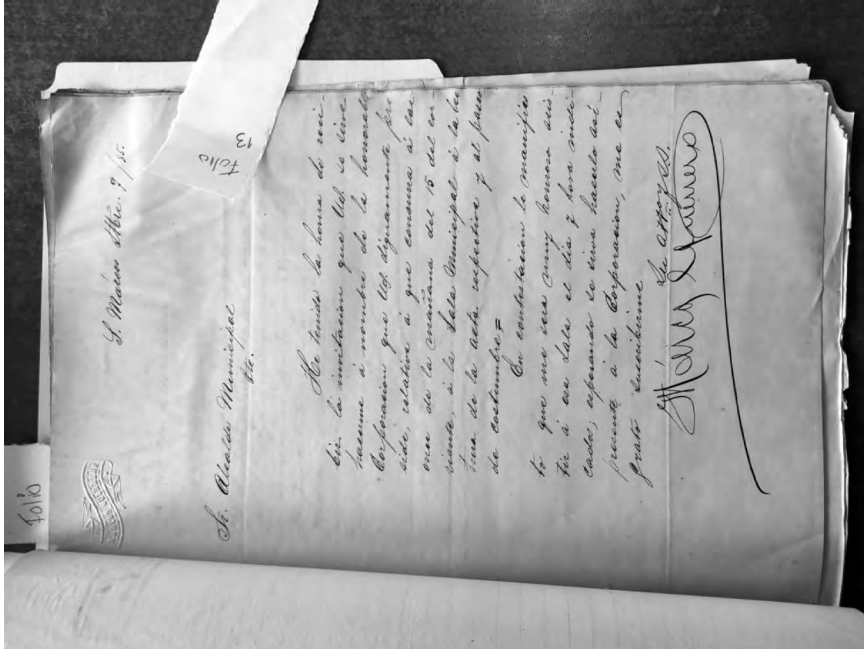 Folio
Folio
13
S. Marcos 9/85.
Sr. Alcalde Municipal
Pte.
He tenido la honra de reci-
bir la invitacion que Ud. se sirve
hacerme á nombre de la honorable
Corporacion que Ud. dignamente pre
side, relativa á que concurra á las
once de la mañana del 15 del cor
riente, á la Sala Municipal á la lec
tura de la acta respetiva y al paseo
de costumbre=
En contestacion le manifies
to que me será muy honroso asis-
tir á esa Sala el dia y hora indi
cado; esperando se sirva hacerlo asi-
presente á la Corporacion, me es
grato suscribirme
Su atto y S.S.